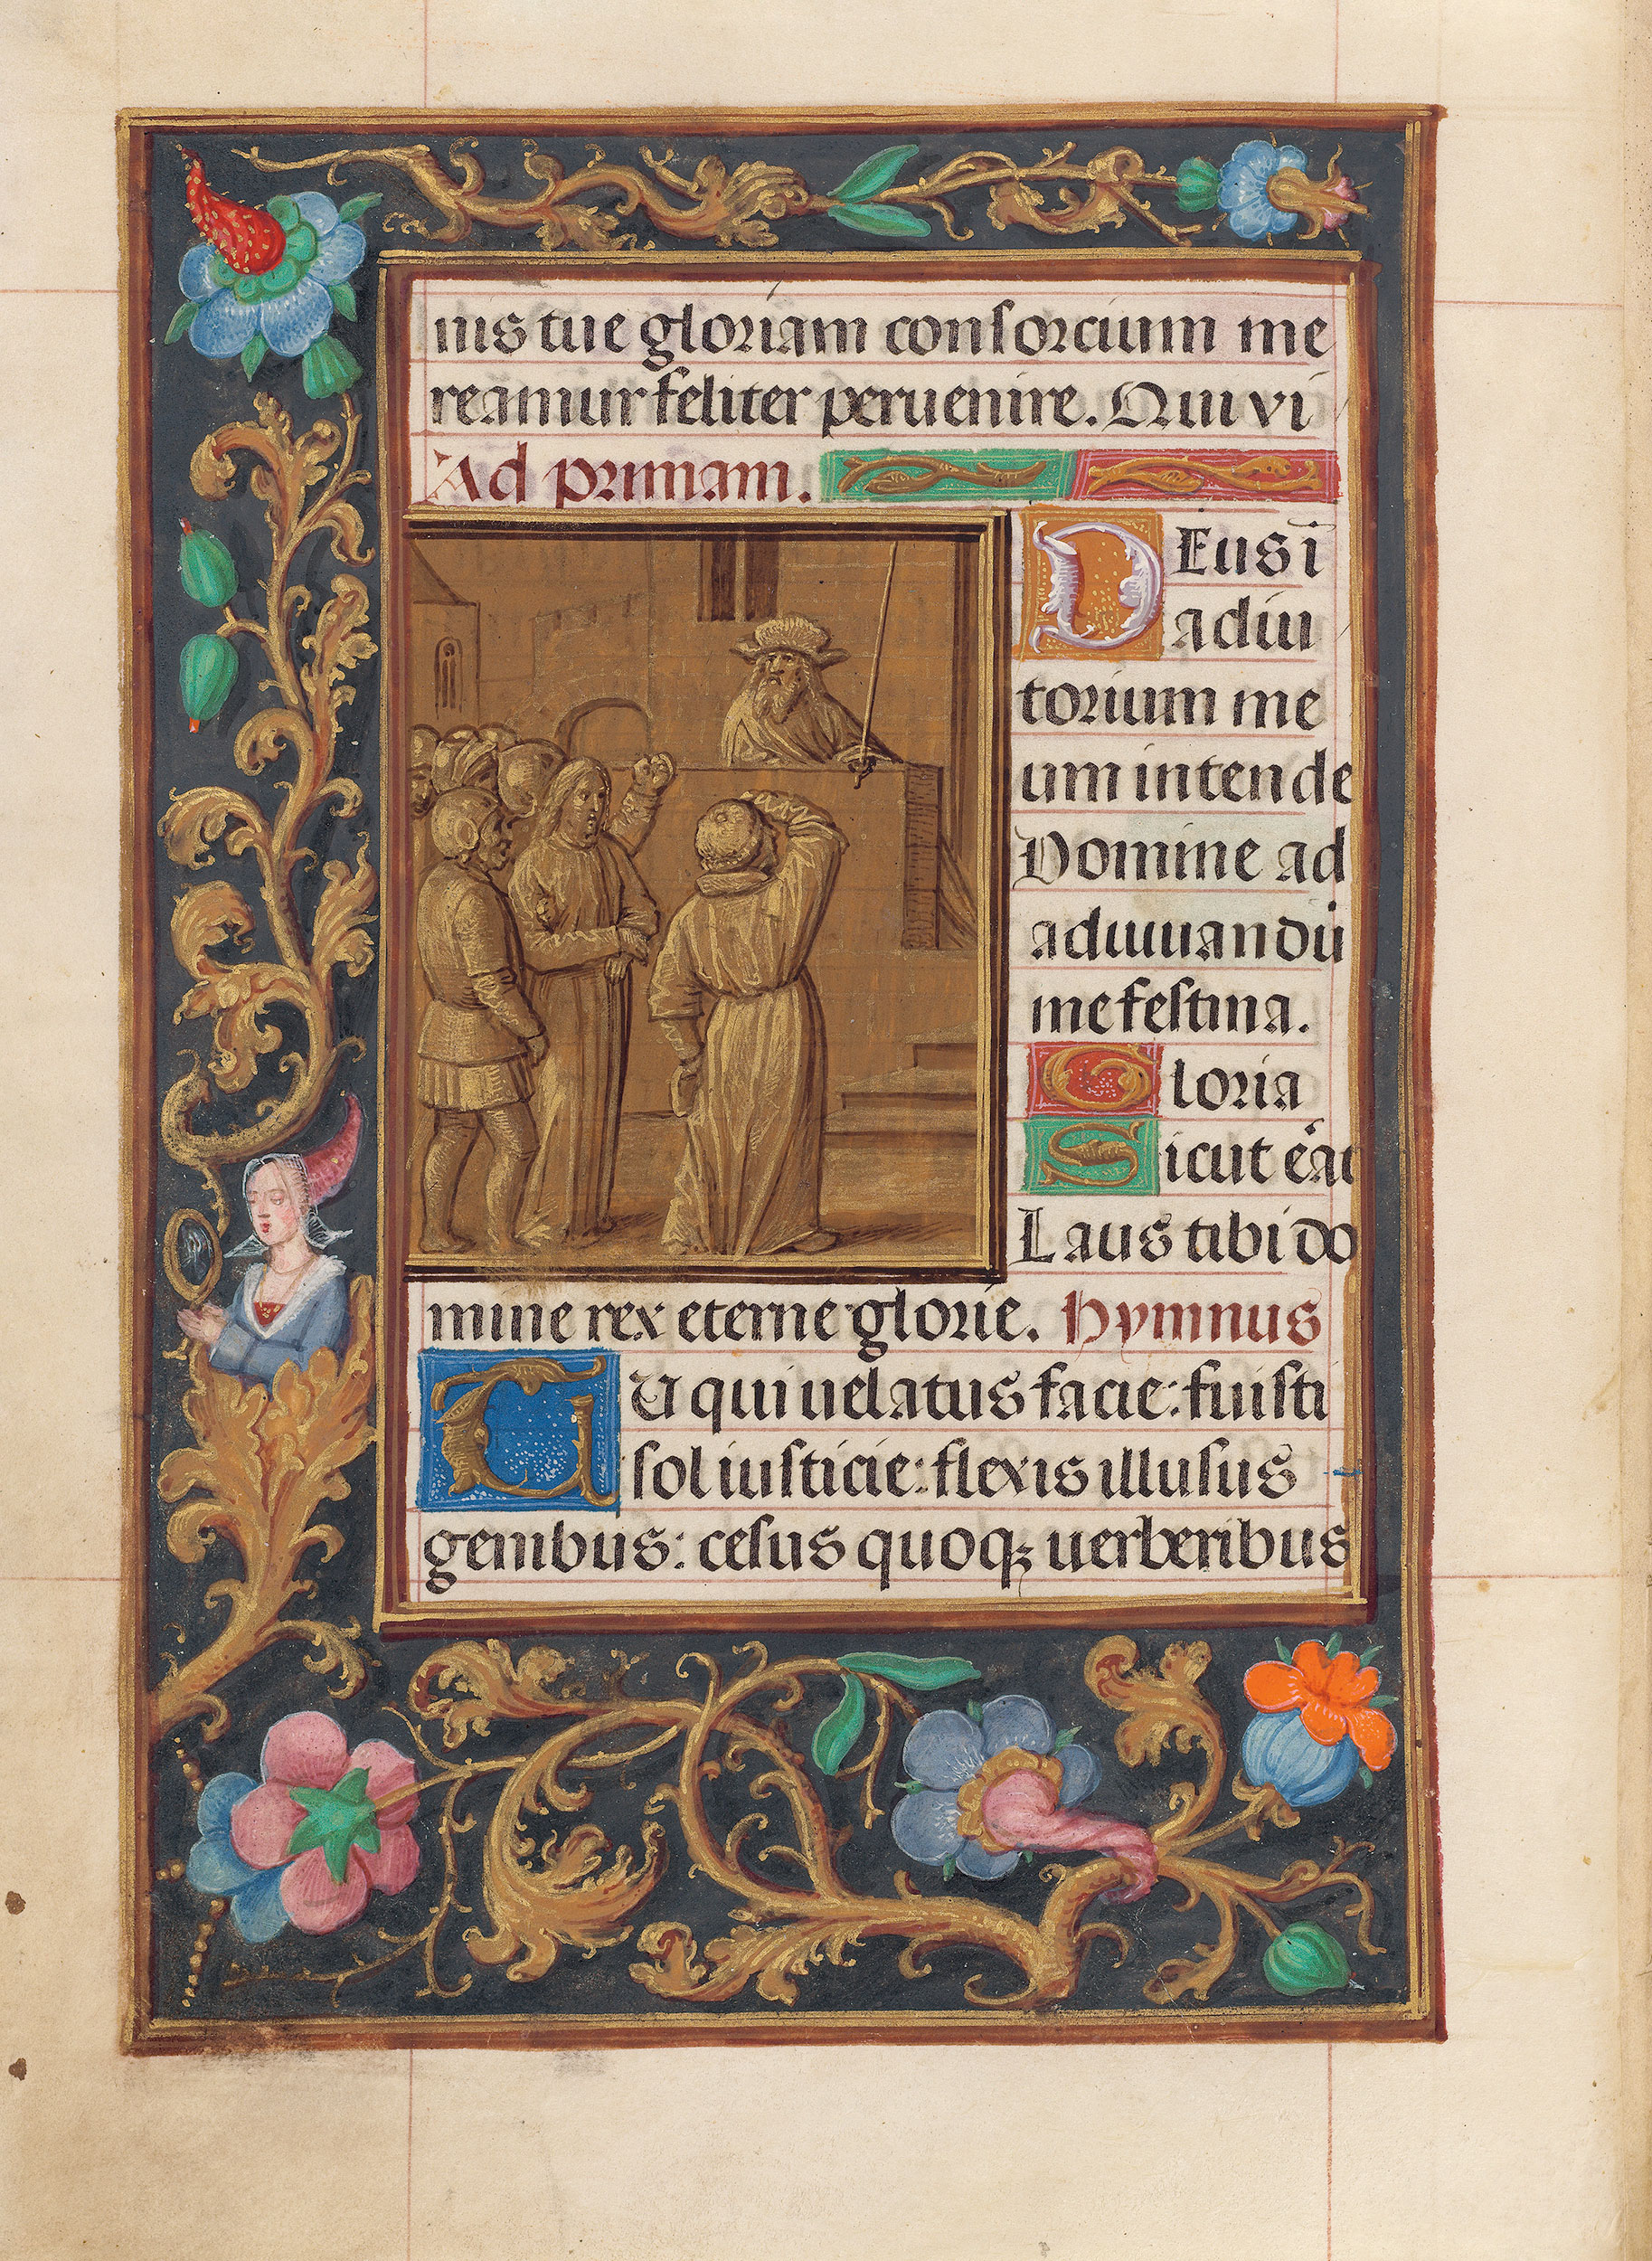 nis tue gloriam consorcium me
reamur feliter peruenire. Qui vi
Ad primam.
DEus ī
adiu
torium me
um intende
Domine ad
adiuuandū
me festina.
Gloria
Sicut erat
Laus tibi do
mine rex eterne glorie. Hymnus
TU qui uelatus facie: fuisti
sol iusticie: flexis illusus
genibus: cesus quoqꝫ uerberibus